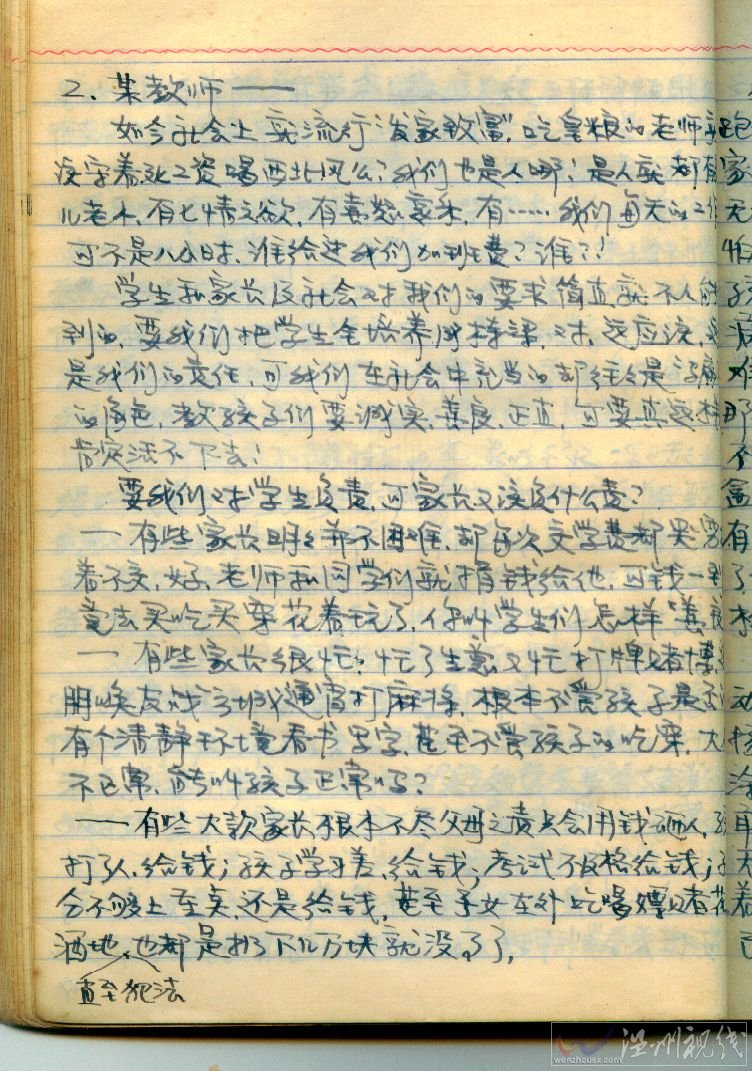 2. 某教师——
如今社会上就流行“发家致富”。吃皇粮的老师就
没字着死工资喝西北风么?我们也是人哪!是人就都有
儿老小,有七情六欲,有喜怒哀乐,有……我们每天的工作
可不是八小时,谁给过我们加班费?谁?!
学生和家长及社会对我们的要求简直就不人能
到的,要我们把学生全培养成栋梁,对,这应该,
是我们的责任,可我们在社会中充当的却往往是
的角色,教孩子们要诚实、善良、正直,可要真这样
肯定活不下去!
要我们对学生负责,可家长又该负什么责?
— 有些家长明明并不困难,却每次交学费都哭穷
着不交,好,老师和同学们就捐钱给他,可钱一到
竟去买吃买穿花着玩了,你叫学生们怎样“善良
— 有些家长很忙:忙了生意又忙打牌赌博,
朋唤友 通宵打麻将,根本不管孩子是否
有个清静环境看书写字,甚至不管孩子的吃穿,大
不正常,能叫孩子正常吗?
——有些大款家长根本不尽父母之责只会用钱砸人,孩
打了人,给钱;孩子学习差,给钱;考试不及格给钱;
会不够上重点,还是给钱,甚至子女在外吃喝嫖赌花
酒地,也都是扔下几万块就没事了,
直至犯法
温州视线
wenzhousx.com